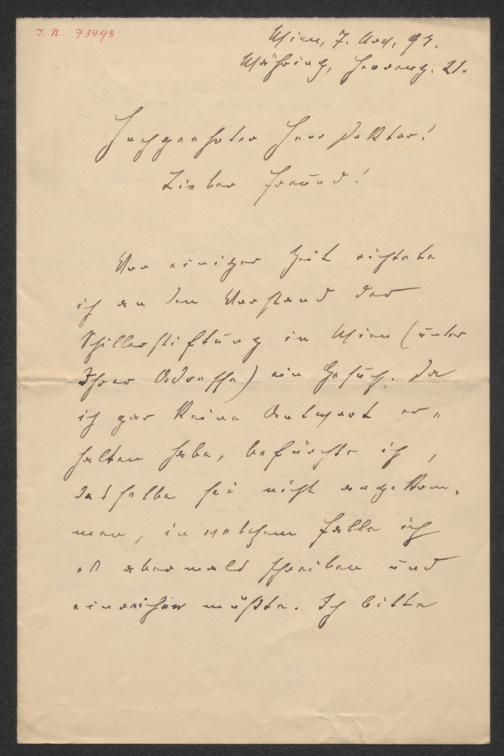 I. N. 73498
Wien, 7. Nov. 94.
Währing, 21.
Hochgeehrter Herr Doktor!
Lieber Freund!
Vor einiger Zeit richtete
ich an den Vorstand der
Schillerstiftung in Wien (unter
Ihrer Adresse) ein Gesuch. Da
ich gar keine Antwort er-
halten habe, befürchte ich,
dasselbe sei nicht angekom-
men, in welchem Falle ich
es abermals schreiben und
einreichen müßte. Ich bitte